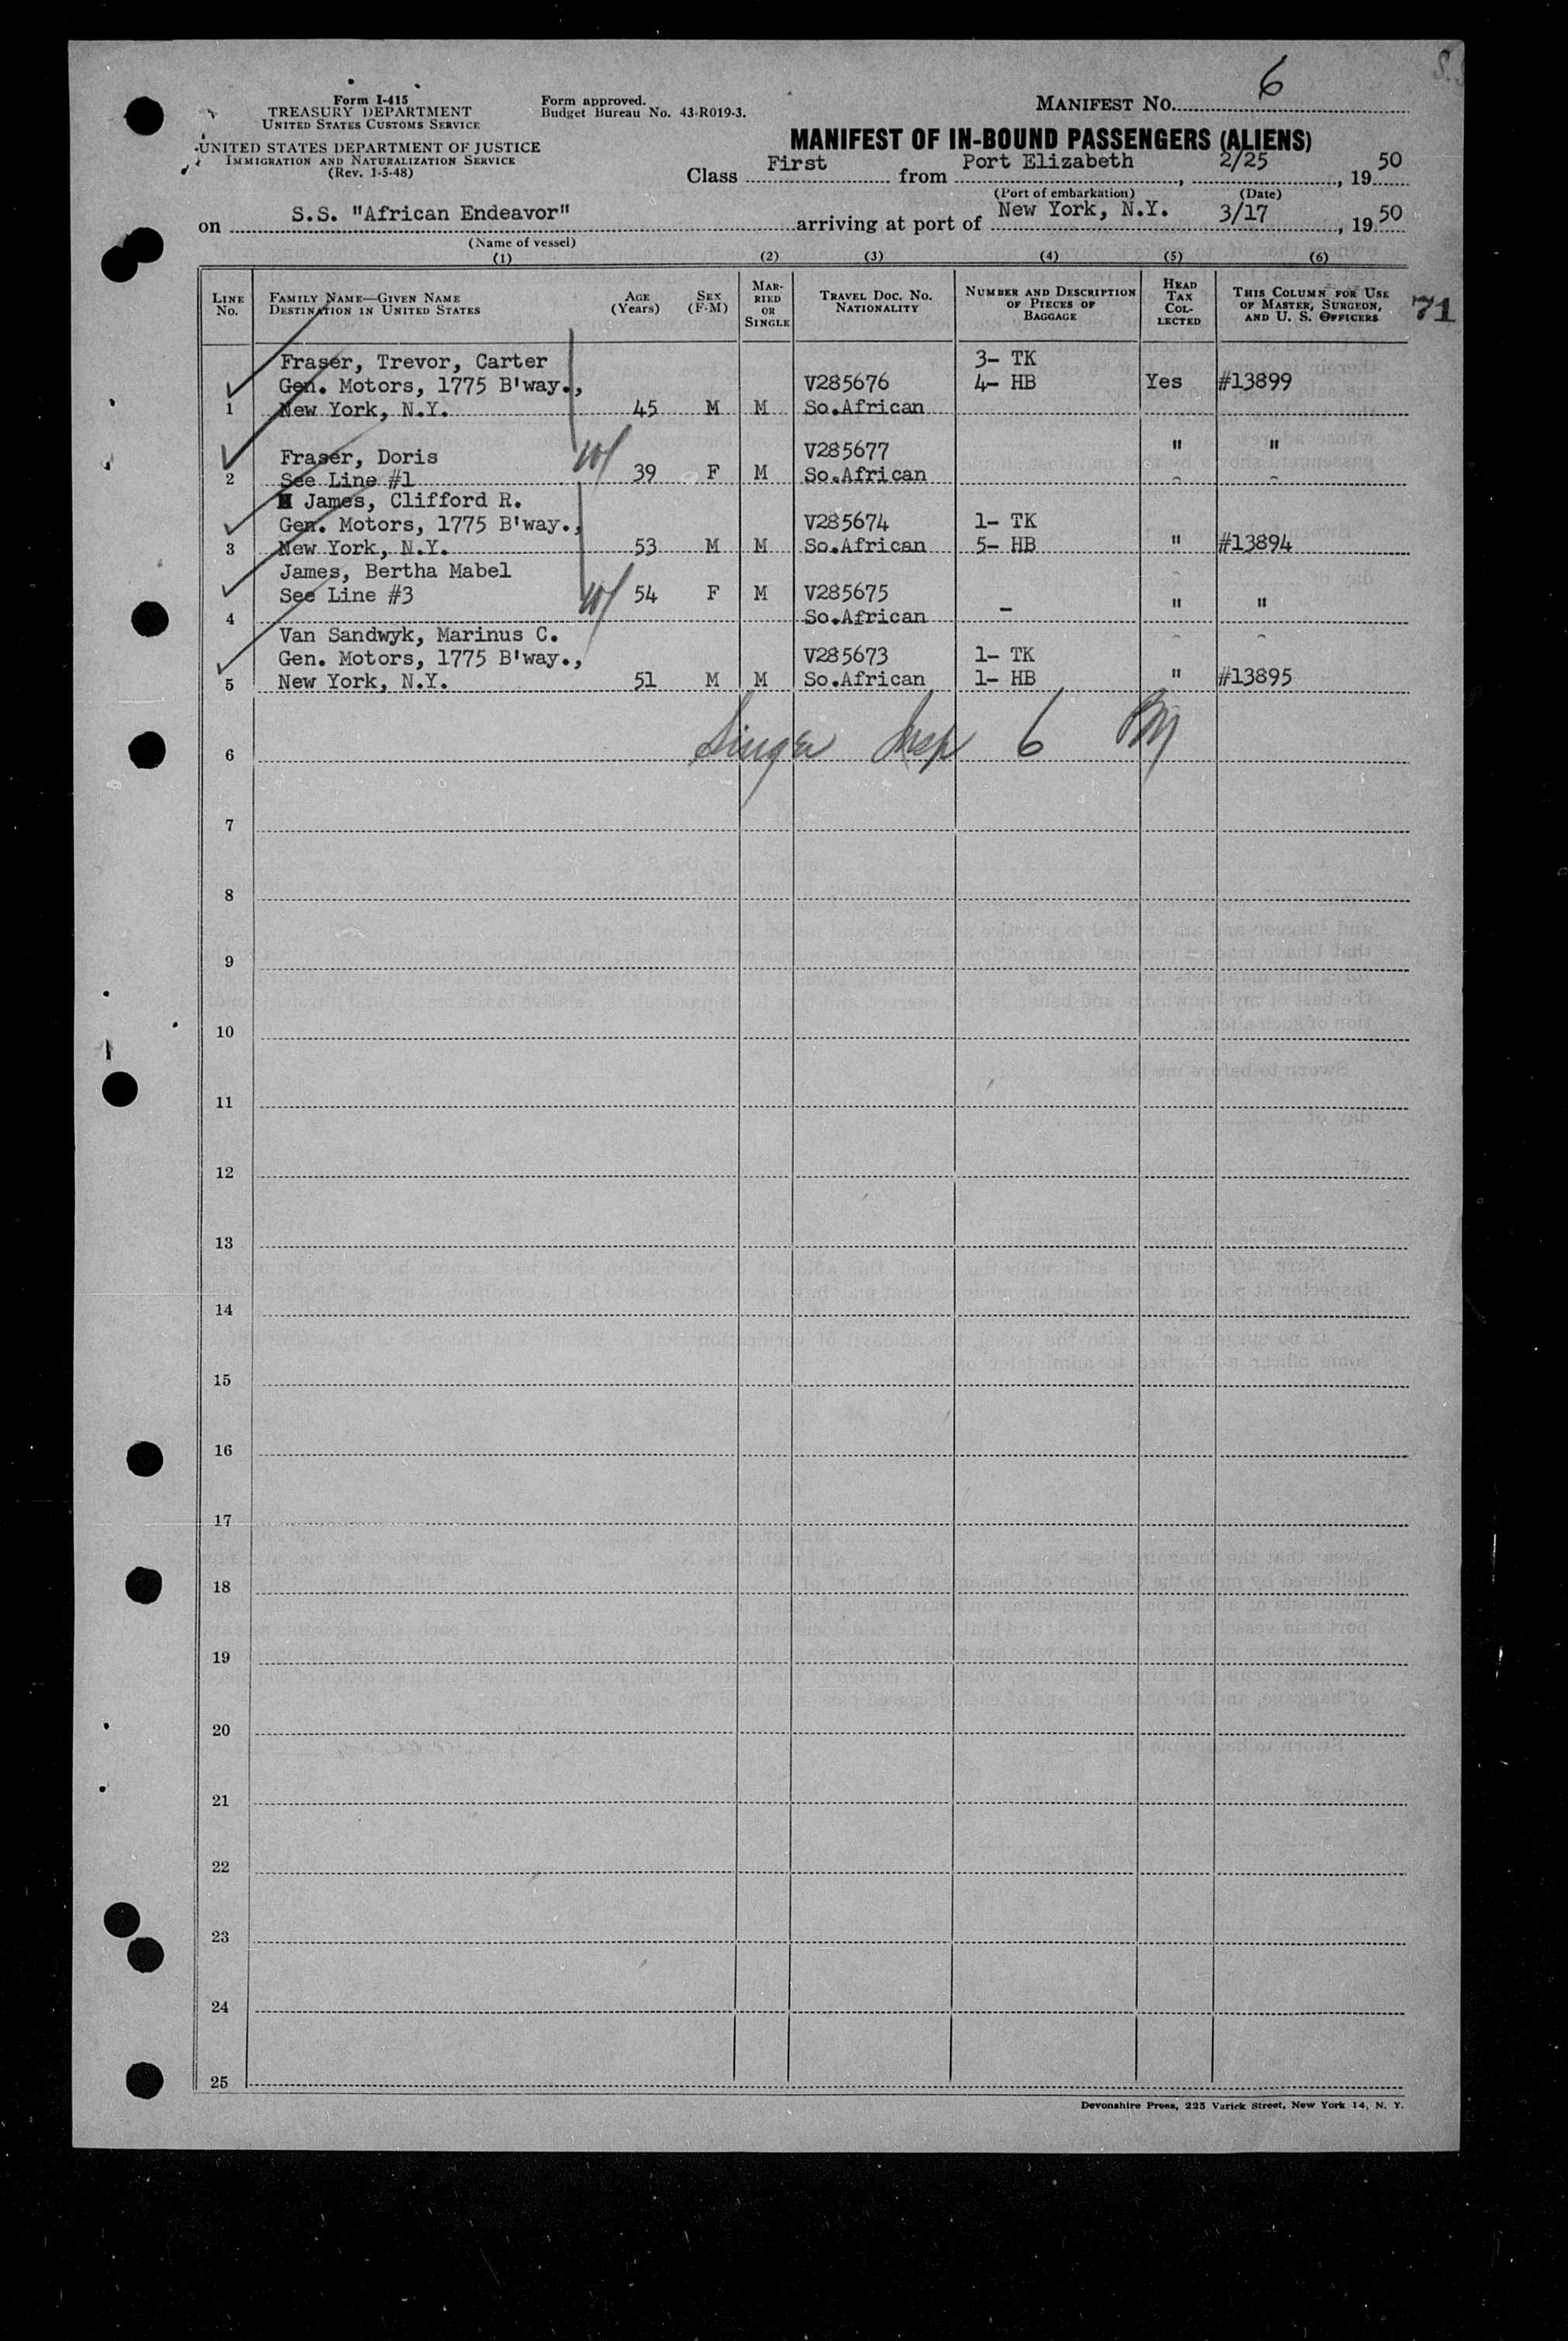 Form I-415
TREASURY DEPARTMENT
UNITED STATES CUSTOMS SERVICE
UNITED STATES DEPARTMENT OF JUSTICE
IMMIGRATION AND NATURALIZATION SERVICE
(Rev. 1-5-48)
Form approved.
Budget Bureau No. 43-R019-3.
MANIFEST No. 6
MANIFEST OF IN-BOUND PASSENGERS (ALIENS)
Class First from Port Elizabeth, 2/25, 19 50
(Port of embarkation) (Date)
on S.S. "African Endeavor" arriving at port of New York, N.Y. 3/17, 19 50
(Name of vessel)
(1) (2) (3) (4) (5) (6)
LINE No. FAMILY NAME—GIVEN NAME DESTINATION IN UNITED STATES AGE (Years) SEX (F-M) MARRIED OR SINGLE TRAVEL DOC. NO. NATIONALITY NUMBER AND DESCRIPTION OF PIECES OF BAGGAGE HEAD TAX COLLECTED THIS COLUMN FOR USE OF MASTER, SURGEON, AND U. S. OFFICERS 71
Fraser, Trevor, Carter 3- TK
Gen. Motors, 1775 B'way., V285676 4- HB Yes #13899
1 New York, N.Y. 45 M M So.African
Fraser, Doris V285677 " "
2 See Line #1 39 F M So.African
James, Clifford R.
Gen. Motors, 1775 B'way., V285674 1- TK
3 New York, N.Y. 53 M M So.African 5- HB " #13894
James, Bertha Mabel
See Line #3 54 F M V285675 - " "
4 So.African
Van Sandwyk, Marinus C.
Gen. Motors, 1775 B'way., V285673 1- TK
5 New York, N.Y. 51 M M So.African 1- HB " #13895
6 Singer Insp 6
7
8
9
10
11
12
13
14
15
16
17
18
19
20
21
22
23
24
25
Devonshire Press, 225 Varick Street, New York 14, N. Y.